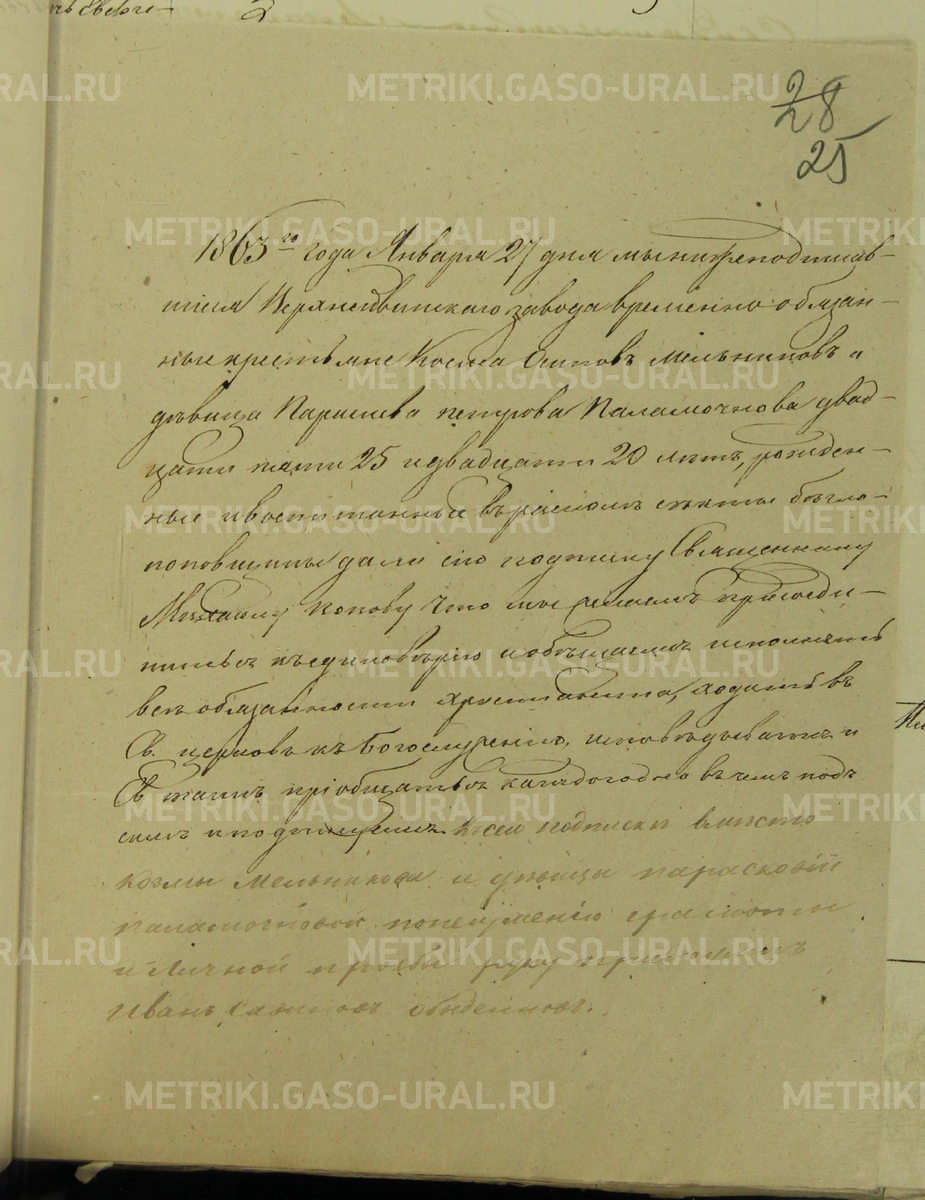 28
25
1863го года Января 27 дня мы нижеподписав-
шіеся Верхнейвинскаго завода временно обязан-
ные крестьяне Косма Осиповъ Мельниковъ и
дѣвица Парасковья Петрова Паламочнова двад-
цати пяти 25 и двадцати 20 лѣтъ, рожден-
ные и воспитанные въ расколѣ секты бѣгло-
поповщины дали сію подписку Священнику
Михаилу Попову что мы желаемъ присоеди-
ниться къ единовѣрію и обѣщаемъ исполнять
всѣ обязанности христіанина, ходить въ
Св. церковь къ Богослуженію, исповѣдываться и
Св. таинъ пріобщаться каждогодно въ чемъ подъ
симъ и подпишемся. К сей подписки вместо
козмы Мельникова и девицы парасковіи
паламочновой понеумению грамоты
и личной прозбы руку приложилъ
Иванъ обыденновъ.
METRIKI.GASO-URAL.RU